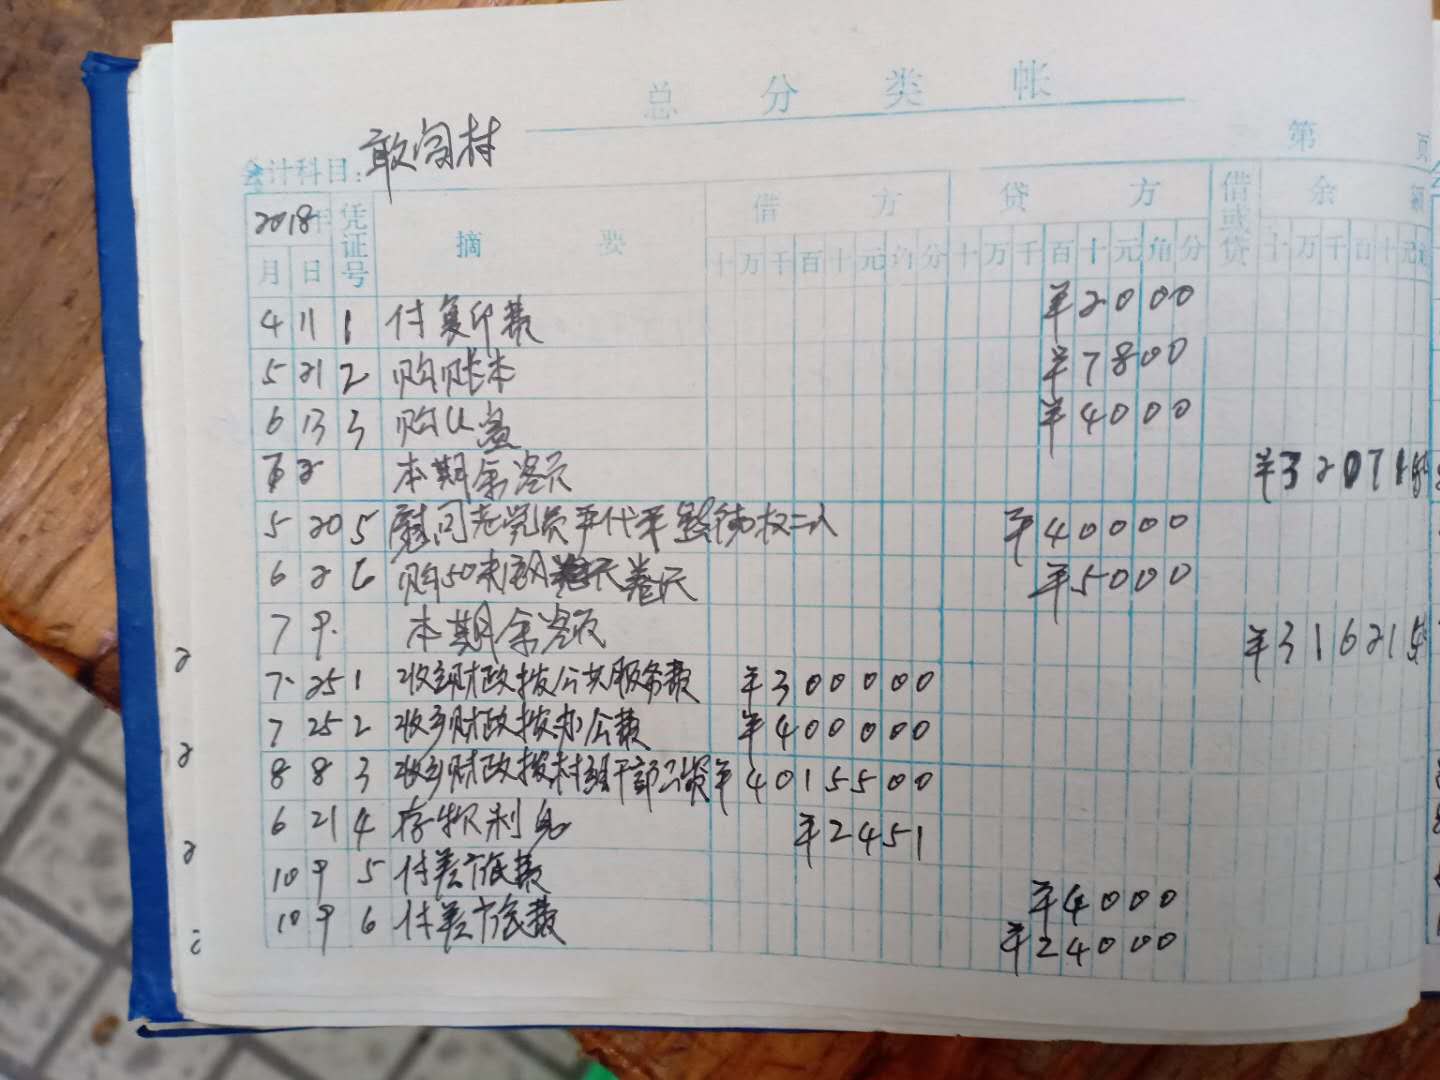 总 分 类 帐
会计科目: 敢闷村 第 页
2018年 凭证号 摘 要 借 方 贷 方 借或贷 余 额
月 日 十万千百十元角分 十万千百十元角分 十万千百十元
4 11 1 付复印费 ¥2000
5 21 2 购账本 ¥7800
6 13 3 购U盘 ¥4000
7 2 本期余额 ¥32071
5 20 5 慰问老党员 二人 ¥40000
6 2 6 购50米 卷尺 ¥5000
7 9. 本期余额 ¥316215
7 25 1 收乡财政拨公共服务费 ¥300000
7 25 2 收乡财政拨办公费 ¥400000
8 8 3 收乡财政拨村组干部工资 ¥4015500
6 21 4 存折利息 ¥2451
10 9 5 付差旅费 ¥4000
10 9 6 付差旅费 ¥24000